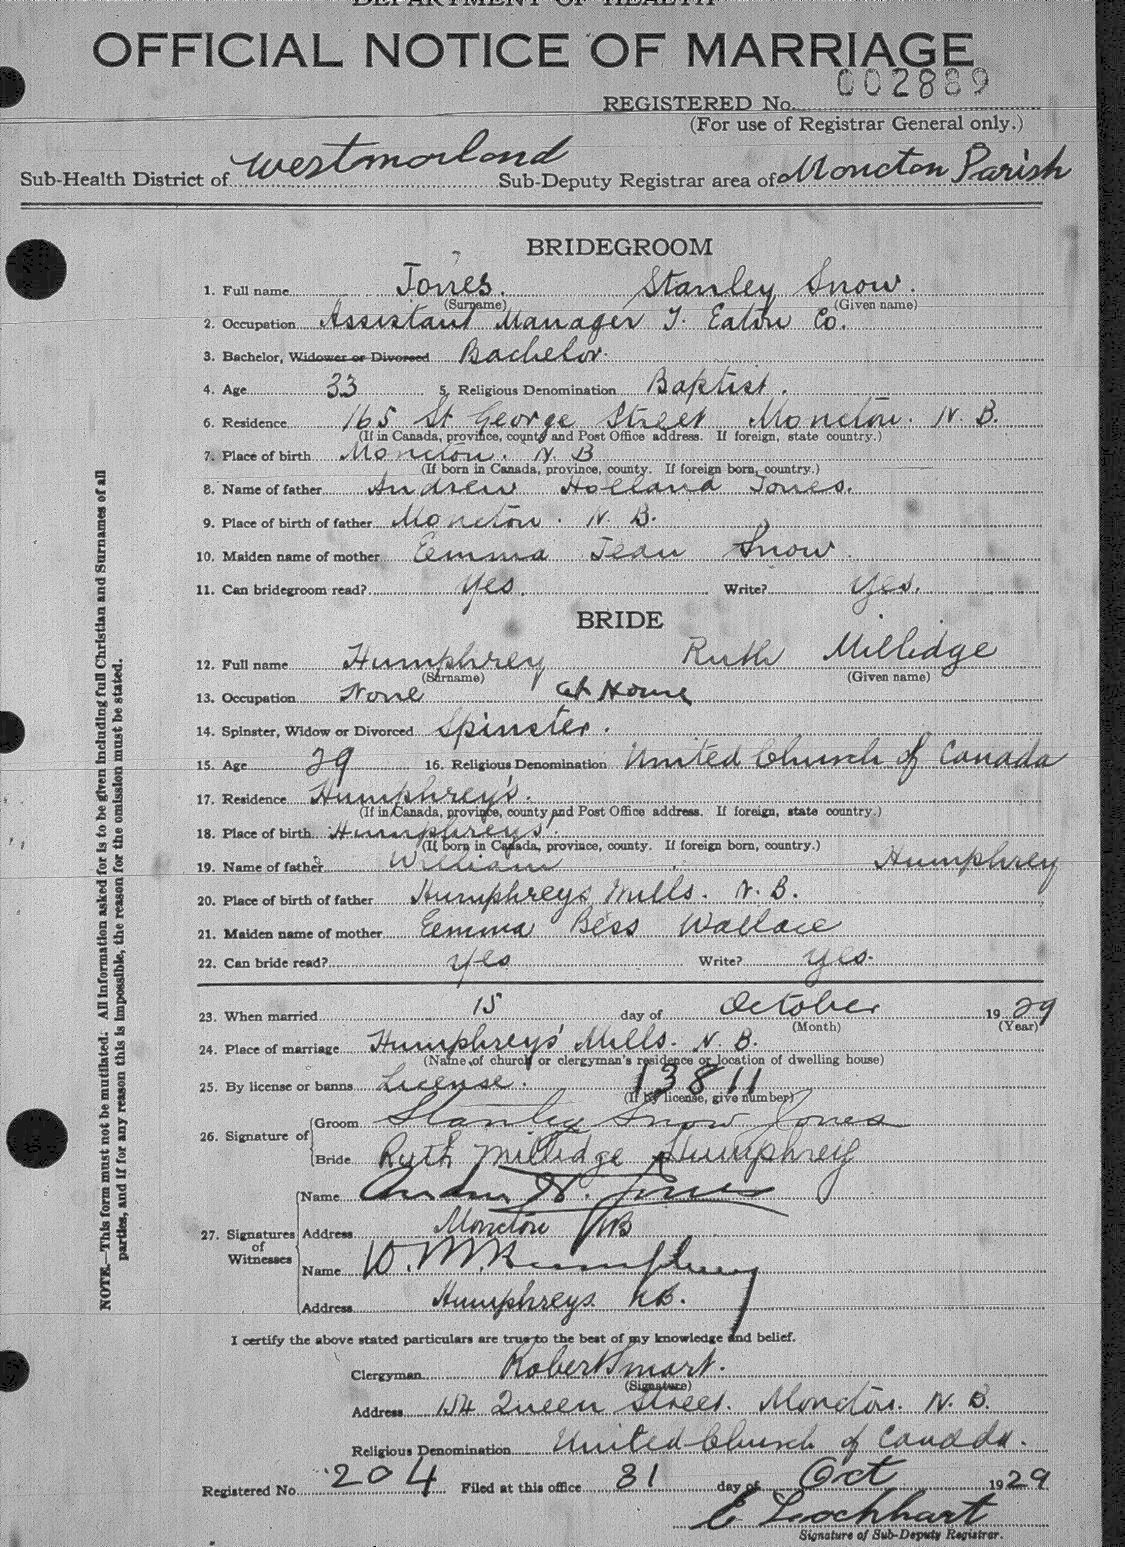 DEPARTMENT OF HEALTH
OFFICIAL NOTICE OF MARRIAGE
002889
REGISTERED No.
(For use of Registrar General only.)
Sub-Health District of Westmorland Sub-Deputy Registrar area of Moncton Parish
BRIDEGROOM
1. Full name Jones. Stanley Snow.
(Surname) (Given name)
2. Occupation Assistant Manager T. Eaton Co.
3. Bachelor, Widower or Divorced Bachelor.
4. Age 33 5. Religious Denomination Baptist.
6. Residence 165 St George Street Moncton. N. B.
(If in Canada, province, county and Post Office address. If foreign, state country.)
7. Place of birth Moncton. N. B
(If born in Canada, province, county. If foreign born, country.)
8. Name of father Andrew Holland Jones.
9. Place of birth of father Moncton. N. B.
10. Maiden name of mother Eemma Jean Snow.
11. Can bridegroom read? Yes. Write? Yes.
BRIDE
12. Full name Humphrey Ruth Millidge
(Surname) (Given name)
13. Occupation None at Home
14. Spinster, Widow or Divorced Spinster.
15. Age 29 16. Religious Denomination United Church of Canada
17. Residence Humphrey's.
(If in Canada, province, county and Post Office address. If foreign, state country.)
18. Place of birth Humphreys'
(If born in Canada, province, county. If foreign born, country.)
19. Name of father William Humphrey
20. Place of birth of father Humphreys Mills. N. B.
21. Maiden name of mother Eemma Bess Wallace
22. Can bride read? Yes Write? Yes.
23. When married 15 day of October 1929
(Month) (Year)
24. Place of marriage Humphreys' Mills. N. B.
(Name of church or clergyman's residence or location of dwelling house)
25. By license or banns License. 13811
(If by license, give number)
26. Signature of Groom Stanley Snow Jones
Bride Ruth Millidge Humphrey
27. Signatures of Witnesses
Name H. Jones
Address Moncton NB
Name W. M. Humphrey
Address Humphreys N.B.
I certify the above stated particulars are true to the best of my knowledge and belief.
Clergyman Robert Smart.
(Signature)
Address 154 Queen Street. Moncton. N. B.
Religious Denomination United Church of Canada.
Registered No. 204 Filed at this office 31 day of Oct 1929
E Lockhart
Signature of Sub-Deputy Registrar.
NOTE.—This form must not be mutilated. All information asked for is to be given including full Christian and Surnames of all
parties, and if for any reason this is impossible, the reason for the omission must be stated.